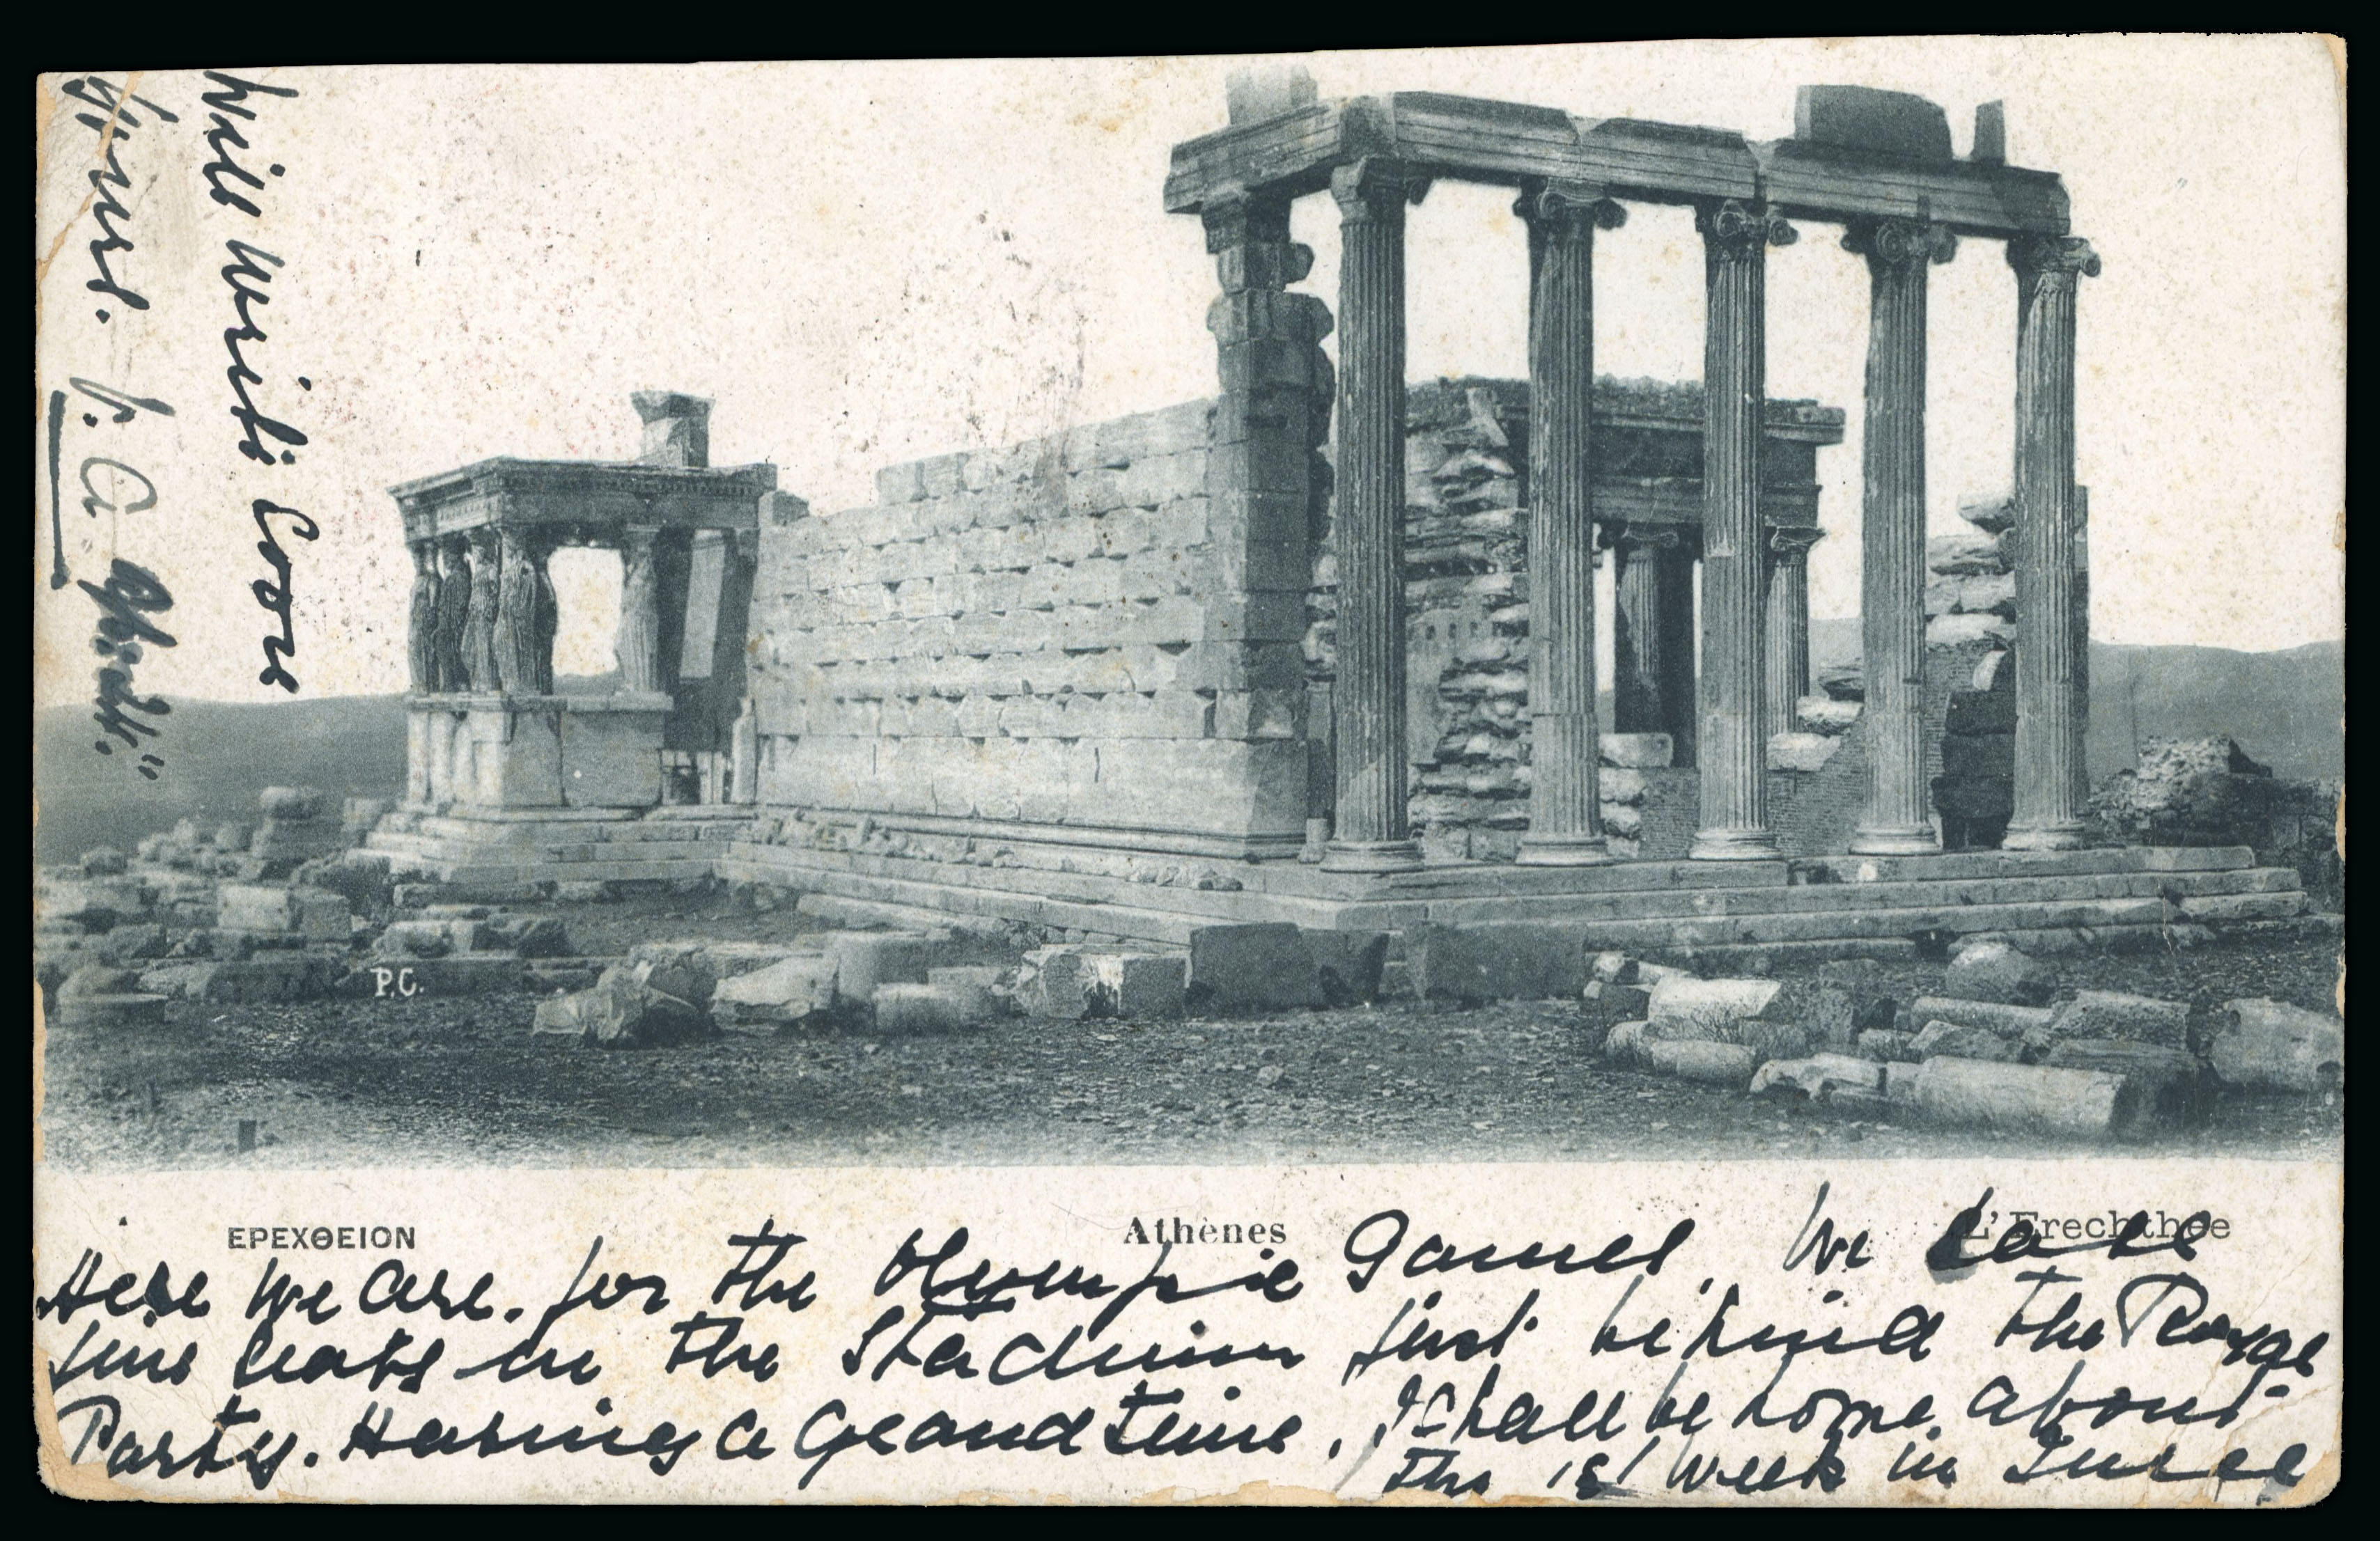 Will write soon
Yours. J. A.
P.C.
ΕΡΕΧΘΕΙΟΝ
Athènes
L'Erechthée
Here we are. for the Olympic Games, We have
fine seats in the Stadium just behind the Royal
Party. Having a Grand time. I shall be home about
the 1st week in June